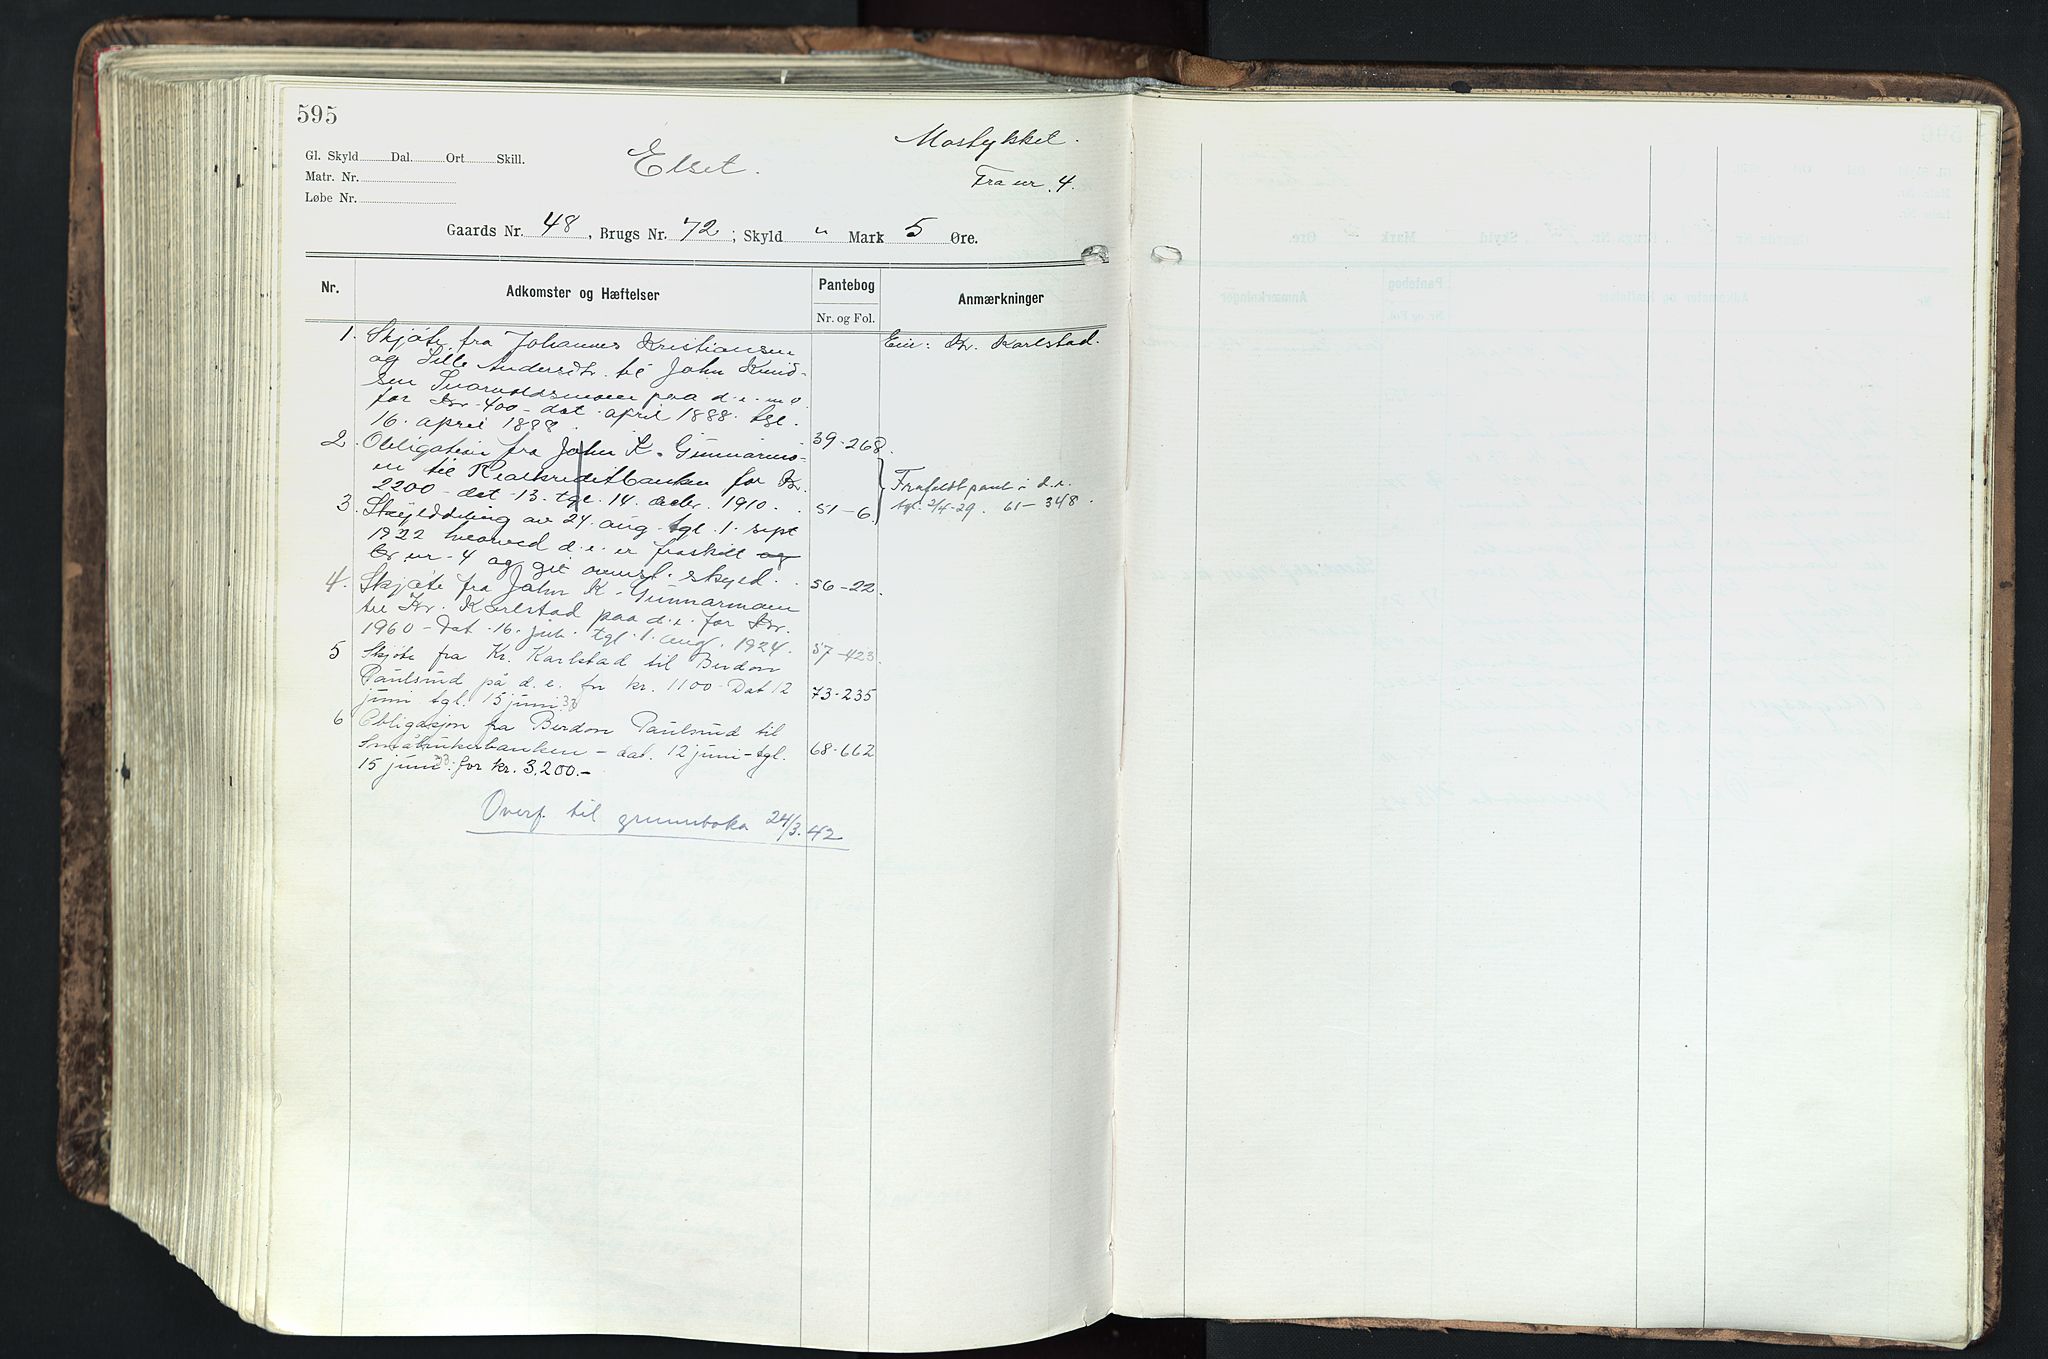 595
Gl. Skyld Dal. Ort Skill.
Matr. Nr.
Løbe Nr.
Elset.
Mostykket.
Fra nr. 4.
Gaards Nr. 48, Brugs Nr. 72; Skyld " Mark 5 Øre.
Nr. Adkomster og Hæftelser Pantebog Nr. og Fol. Anmærkninger
1. Skjøte fra Johannes Kristiansen Eier: Kr. Karlstad.
og Sille Andersdtr. til John Knud-
sen paa d. e. m. v.
for Kr. 400 - dat. april 1888. tgl.
16. april 1888. 39-268.
2. Obligation fra John K. Gunnarmo-
en til Realkreditbanken for Kr.
2200 - dat. 13. tgl. 14. decbr. 1910. 51-6.
Frafaldt pant i d. e.
tgl. 2/4-29. 61-348.
3. Skylddeling av 24. aug. tgl. 1. sept
1922 hvorved d. e. er fraskilt og
br nr. 4 og git ovenst. skyld. 56-22.
4. Skjøte fra John K. Gunnarmoen
til Kr. Karlstad paa d. e. for Kr.
1960 - Dat. 16. juli. tgl. 1. aug. 1924. 57-423.
5 Skjøte fra Kr. Karlstad til Berdon
Paulsrud på d. e. for kr. 1100 - Dat 12
juni tgl. 15 juni 73-235
6 Obligasjon fra Berdon Paulsrud til
Småbrukerbanken - dat. 12 juni - tgl. 68-662
15 juni for kr. 3.200.-
Overf. til grunnboka 24/3.42